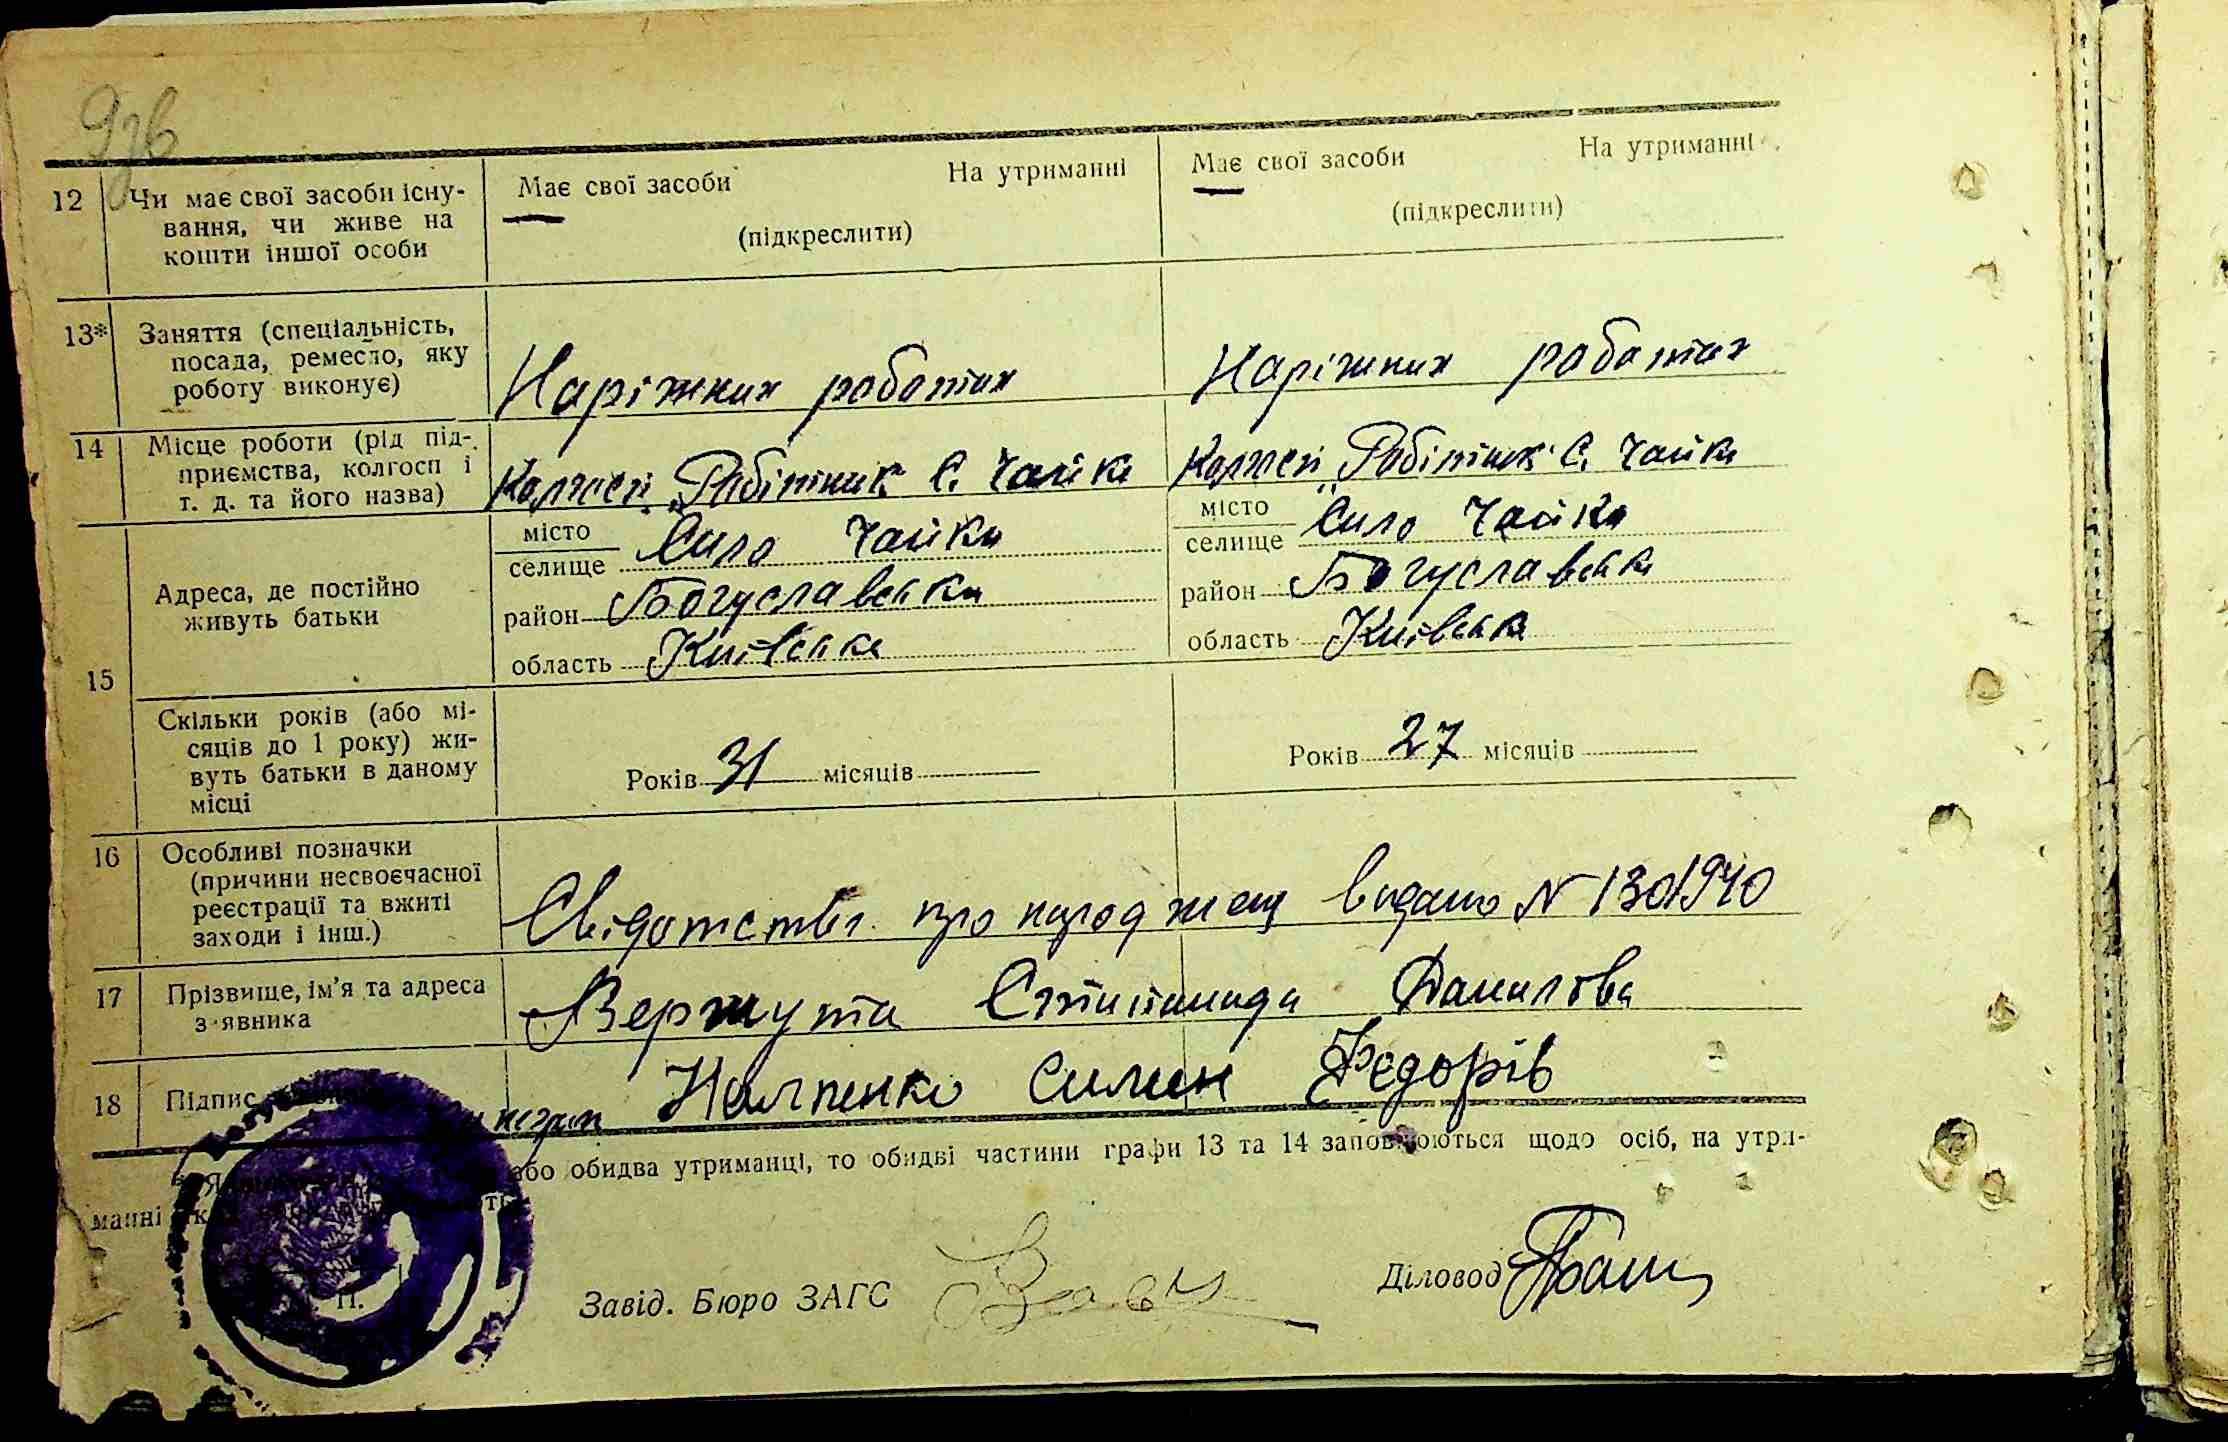 9зв
12 Чи має свої засоби існу- Має свої засоби На утриманні Має свої засоби На утриманні
вання, чи живе на (підкреслити) (підкреслити)
кошти іншої особи
13* Заняття (спеціальність,
посада, ремесло, яку Наріжних роботах Наріжних роботах
роботу виконує)
14 Місце роботи (рід під-
приємства, колгосп і Колгосп „Робітник" С. Чайки Колгосп „Робітник" С. Чайки
т. д. та його назва)
15 Адреса, де постійно
живуть батьки
місто
селище Село Чайки
район Богуславськи
область Київська
місто
селище Село Чайки
район Богуславська
область Київська
Скільки років (або мі-
сяців до 1 року) жи-
вуть батьки в даному Років 31 місяців Років 27 місяців
місці
16 Особливі позначки
(причини несвоєчасної
реєстрації та вжиті Свідотство про народжен видано № 1301940
заходи і інш.)
17 Прізвище, ім'я та адреса Вержута Данилова
з'явника
18 Підпис неграм Налпенко Силин Федорів
або обидва утриманці, то обидві частини графи 13 та 14 заповнюються щодо осіб, на утри-
манні
П.
Завід. Бюро ЗАГС Діловод